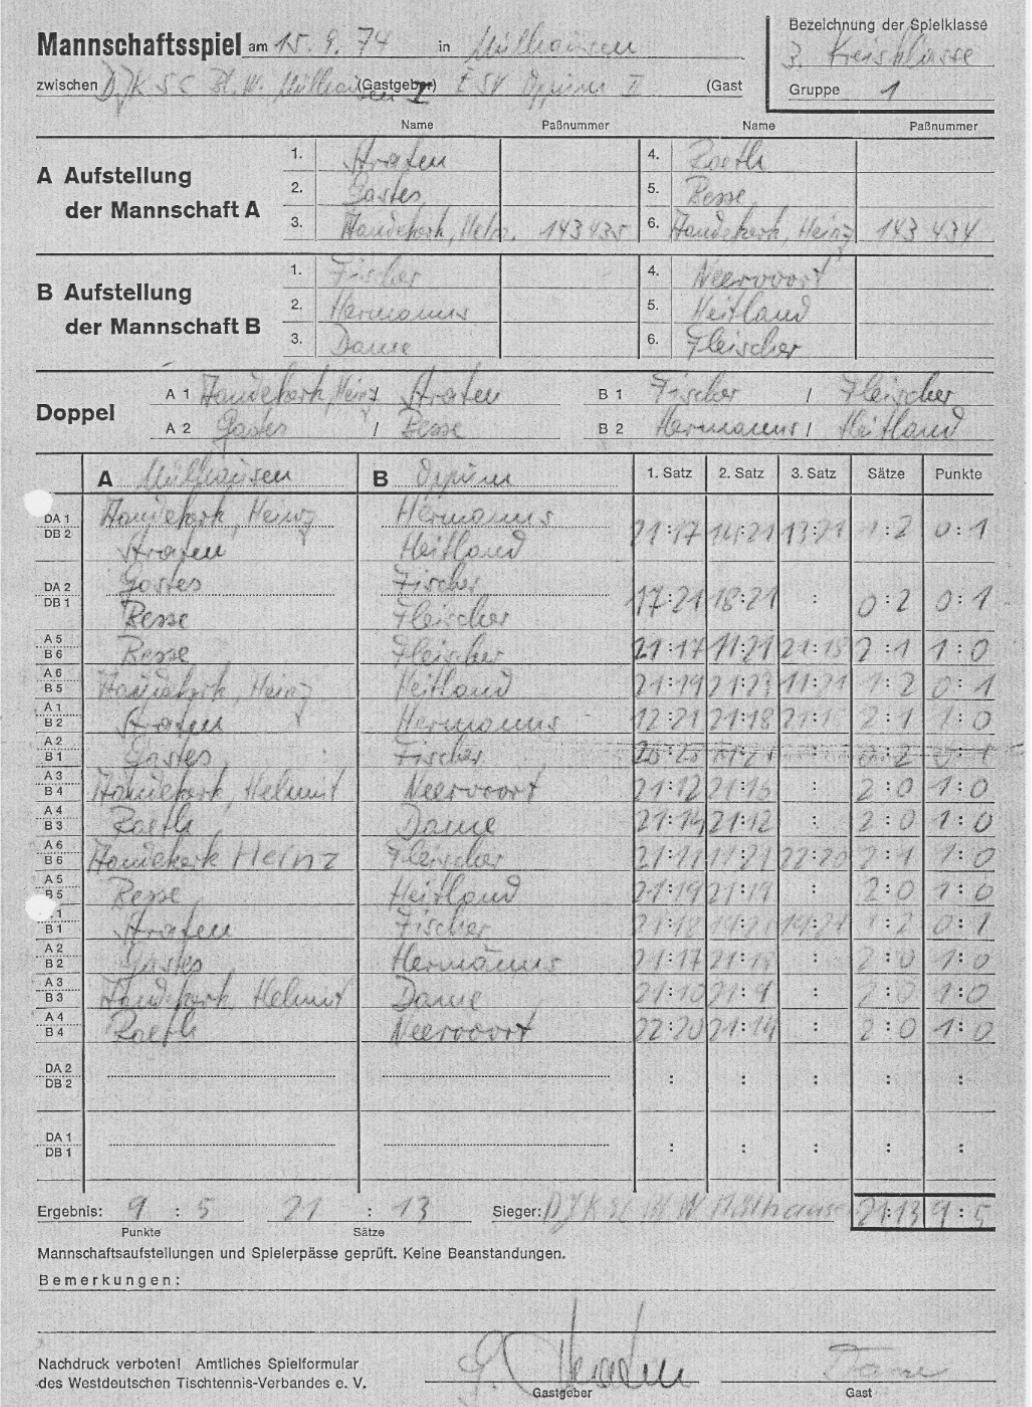 Bezeichnung der Spielklasse
Mannschaftsspiel am 15.9.74 in Mülhausen
3. Kreisklasse
zwischen DJK SC Bl. W. Mülhausen I (Gastgeber) ESV Oppum II (Gast
Gruppe 1
Name Paßnummer Name Paßnummer
1. Straten 4. Raeth
A Aufstellung
2. Gastes 5. Besse
der Mannschaft A
3. Handekerk, Helm. 143435 6. Handekerk, Heinz 143434
1. Fischer 4. Neervoort
B Aufstellung
2. Hermanns 5. Heitland
der Mannschaft B
3. Dame 6. Fleischer
A 1 Handekerk, Heinz / Straten B 1 Fischer / Fleischer
Doppel
A 2 Gastes / Besse B 2 Hermanns / Heitland
A Mülhausen B Oppum 1. Satz 2. Satz 3. Satz Sätze Punkte
DA 1 Handekerk, Heinz Hermanns
DB 2 Straten Heitland 21:17 14:21 13:21 1:2 0:1
DA 2 Gastes Fischer
DB 1 Besse Fleischer 17:21 18:21 : 0:2 0:1
A 5
B 6 Besse Fleischer 21:17 11:21 21:18 2:1 1:0
A 6
B 5 Handekerk, Heinz Heitland 21:19 21:23 11:21 1:2 0:1
A 1
B 2 Straten Hermanns 12:21 21:18 2:1 1:0
A 2
B 1 Gastes Fischer 0:2 0:1
A 3
B 4 Handekerk, Helmut Neervoort 21:12 21:16 : 2:0 1:0
A 4
B 3 Raeth Dame 21:14 21:12 : 2:0 1:0
A 6
B 6 Handekerk Heinz Fleischer 21:11 11:21 22:20 2:1 1:0
A 5
B 5 Besse Heitland 21:19 21:19 : 2:0 1:0
B 1 Straten Fischer 21:18 19:21 1:2 0:1
A 2
B 2 Gastes Hermanns 21:17 2:0 1:0
A 3
B 3 Handekerk Helmut Dame 21:10 21:9 : 2:0 1:0
A 4
B 4 Raeth Neervoort 22:20 21:14 : 2:0 1:0
DA 2
DB 2 : : : : :
DA 1
DB 1 : : : : :
Ergebnis: 9 : 5 21 : 13 Sieger: DJK SC Bl W Mülhausen 21:13 9:5
Punkte Sätze
Mannschaftsaufstellungen und Spielerpässe geprüft. Keine Beanstandungen.
Bemerkungen:
Nachdruck verboten! Amtliches Spielformular
des Westdeutschen Tischtennis-Verbandes e. V.
Dame
Gastgeber Gast